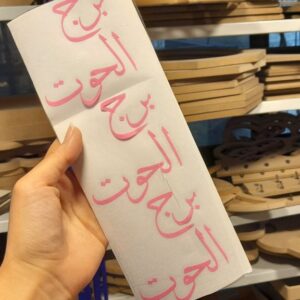 برج
الحوت
برج
الحوت
برج
الحوت